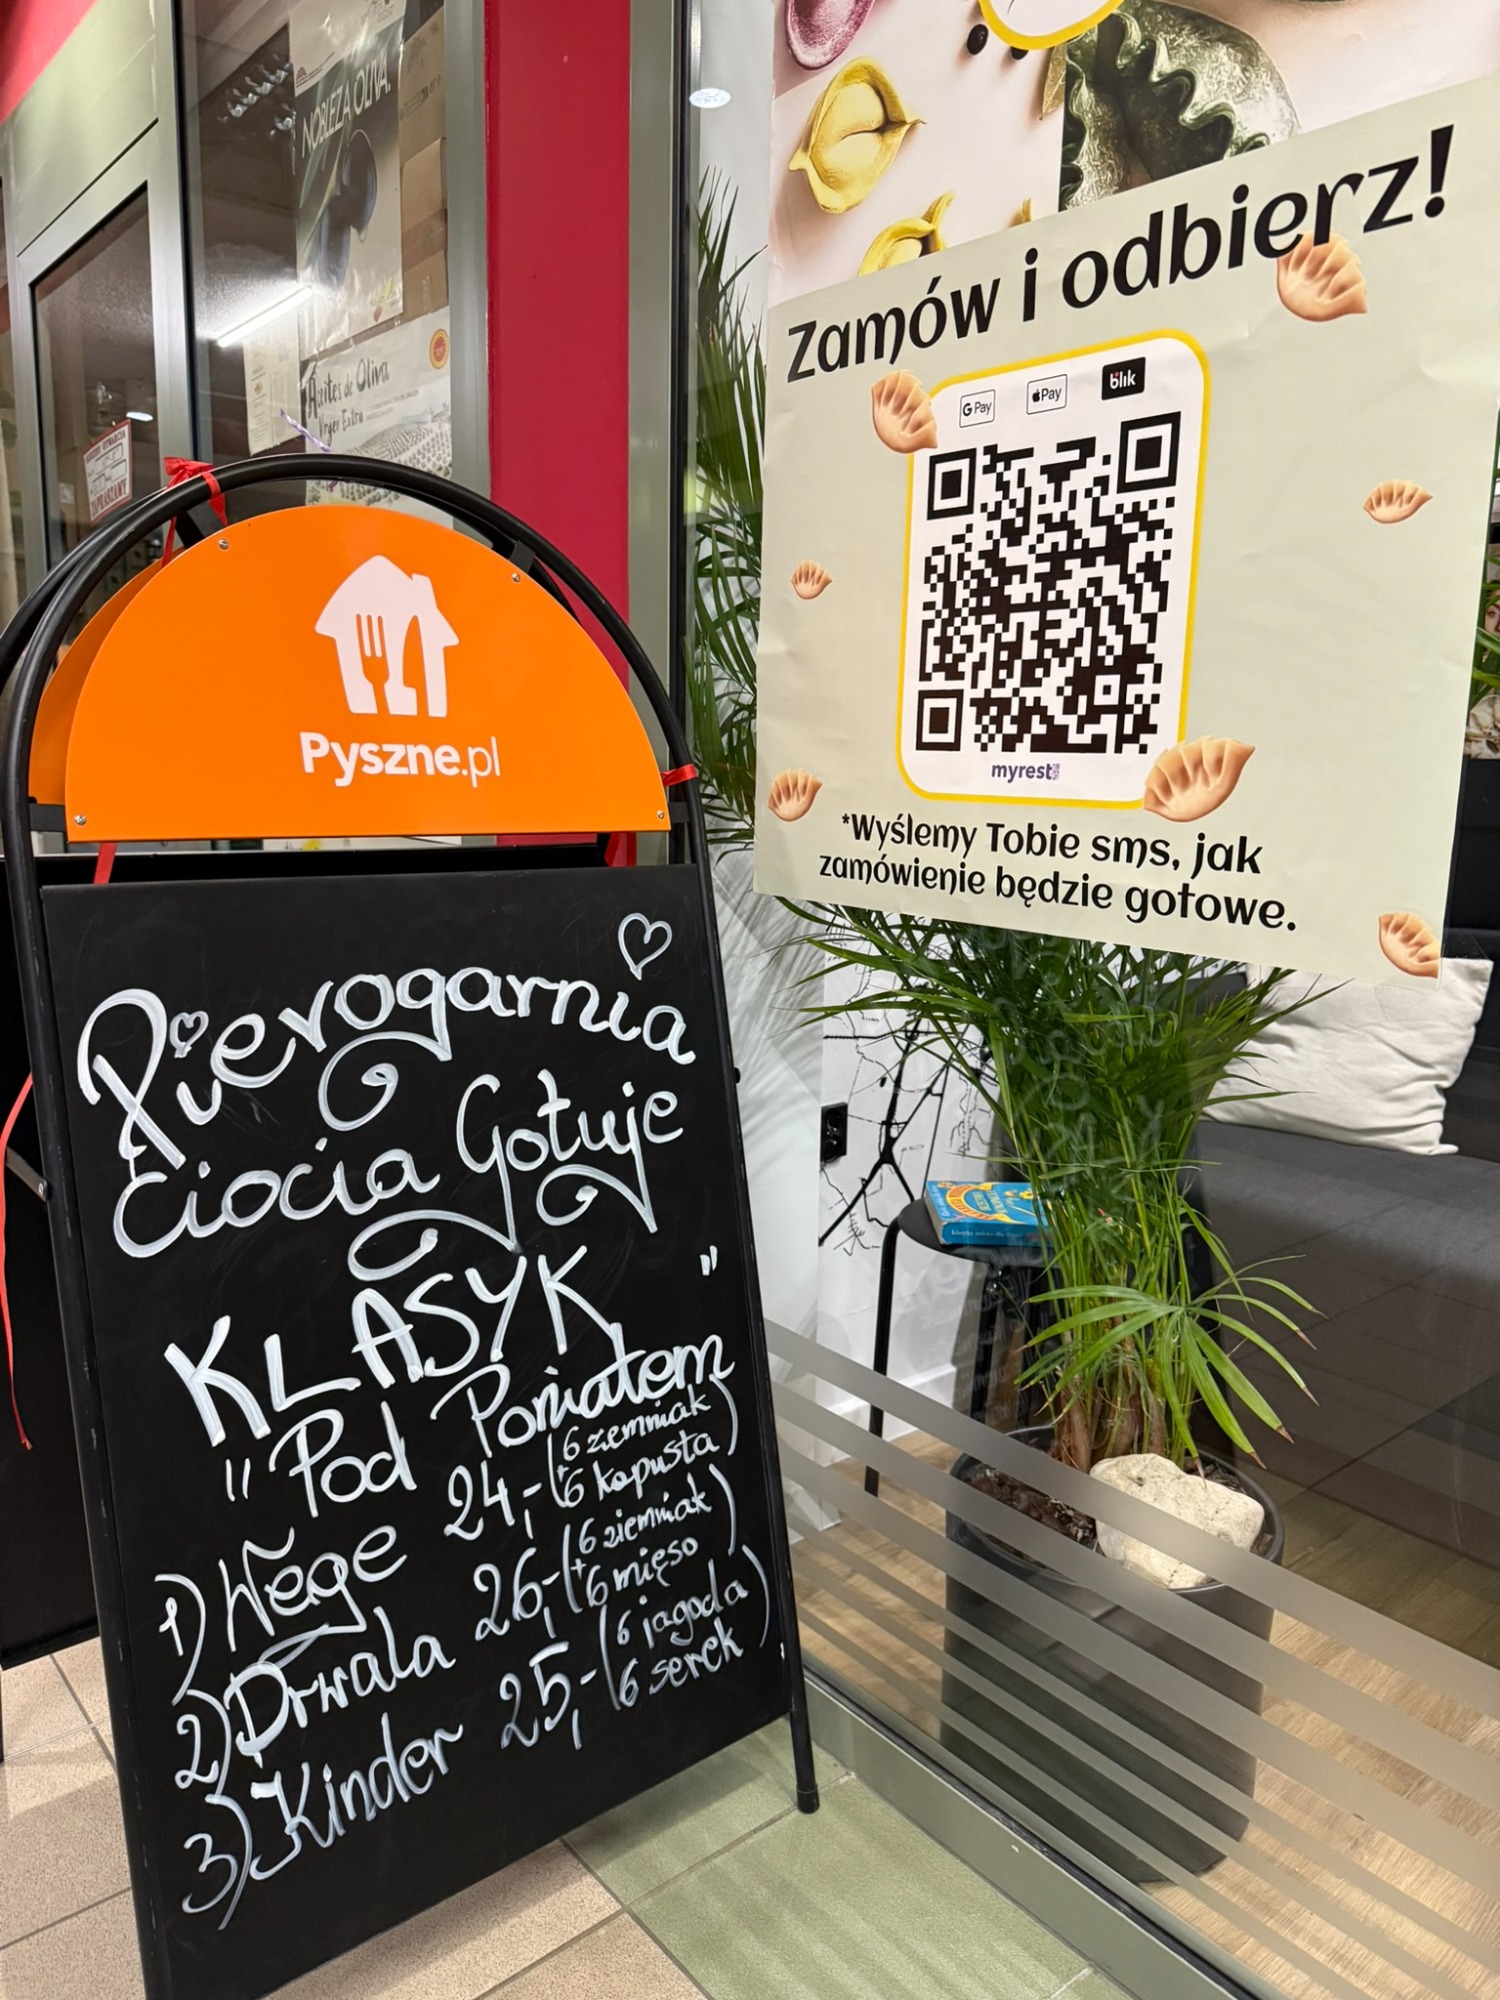 NOBLEZA OLIVA
Aceites de Oliva
Virgen Extra
ZAPRASZAMY
Zamów i odbierz!
G Pay
Pay
blik
myrest
*Wyślemy Tobie sms, jak
zamówienie będzie gotowe.
Pyszne.pl
Pierogarnia
Ciocia Gotuje
KLASYK
"Pod Pomiatem"
1) Wege 24,- (6 ziemniak
+ 6 kapusta)
2) Drwala 26,- (6 ziemniak
+ 6 mięso)
3) Kinder 25,- (6 jagoda
6 serek)